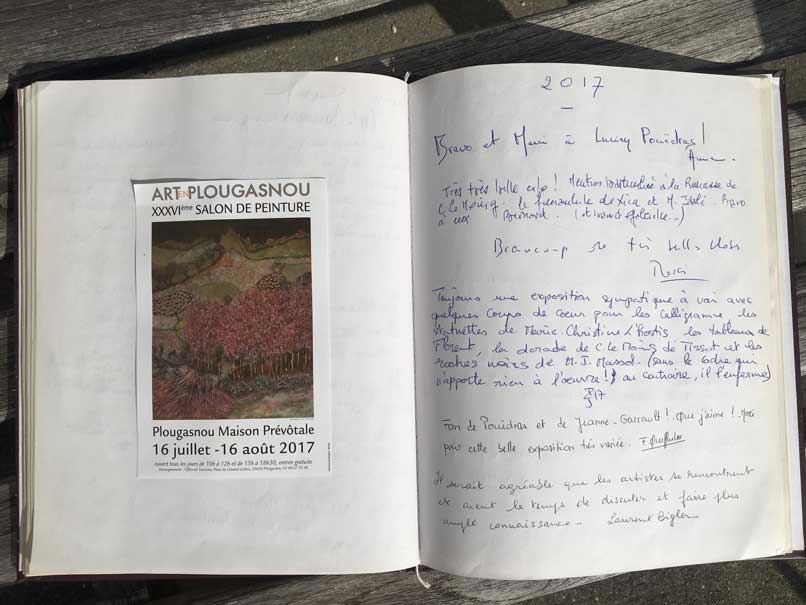 ART EN PLOUGASNOU
XXXVIème SALON DE PEINTURE
Plougasnou Maison Prévôtale
16 juillet -16 août 2017
ouvert tous les jours de 10h à 12h et de 15h à 18h30, entrée gratuite
2017
Bravo et Merci à Pouëdras!
Très très belle expo! Mention à la de
et M. Bravo
à eux
Beaucoup de très belles choses
Toujours une exposition sympatique à voir avec
quelques coups de coeur pour les calligrame, les
statuettes de Marie-Christine L'hostis les tableaux de
Florent, la dorade de C. Le Moing de Tissot et les
roches noires de M. J. Massol. (sans le cadre qui
n'apporte rien à l'oeuvre! au contraire, il l'enferme)
17
Fan de Pouëdras et de Jeanne-Garrault! Que j'aime! Merci
pour cette belle exposition très variée.
Il serait agréable que les artistes se rencontrent
et aient le temps de discuter et faire plus
ample connaissance - Laurent Bigler